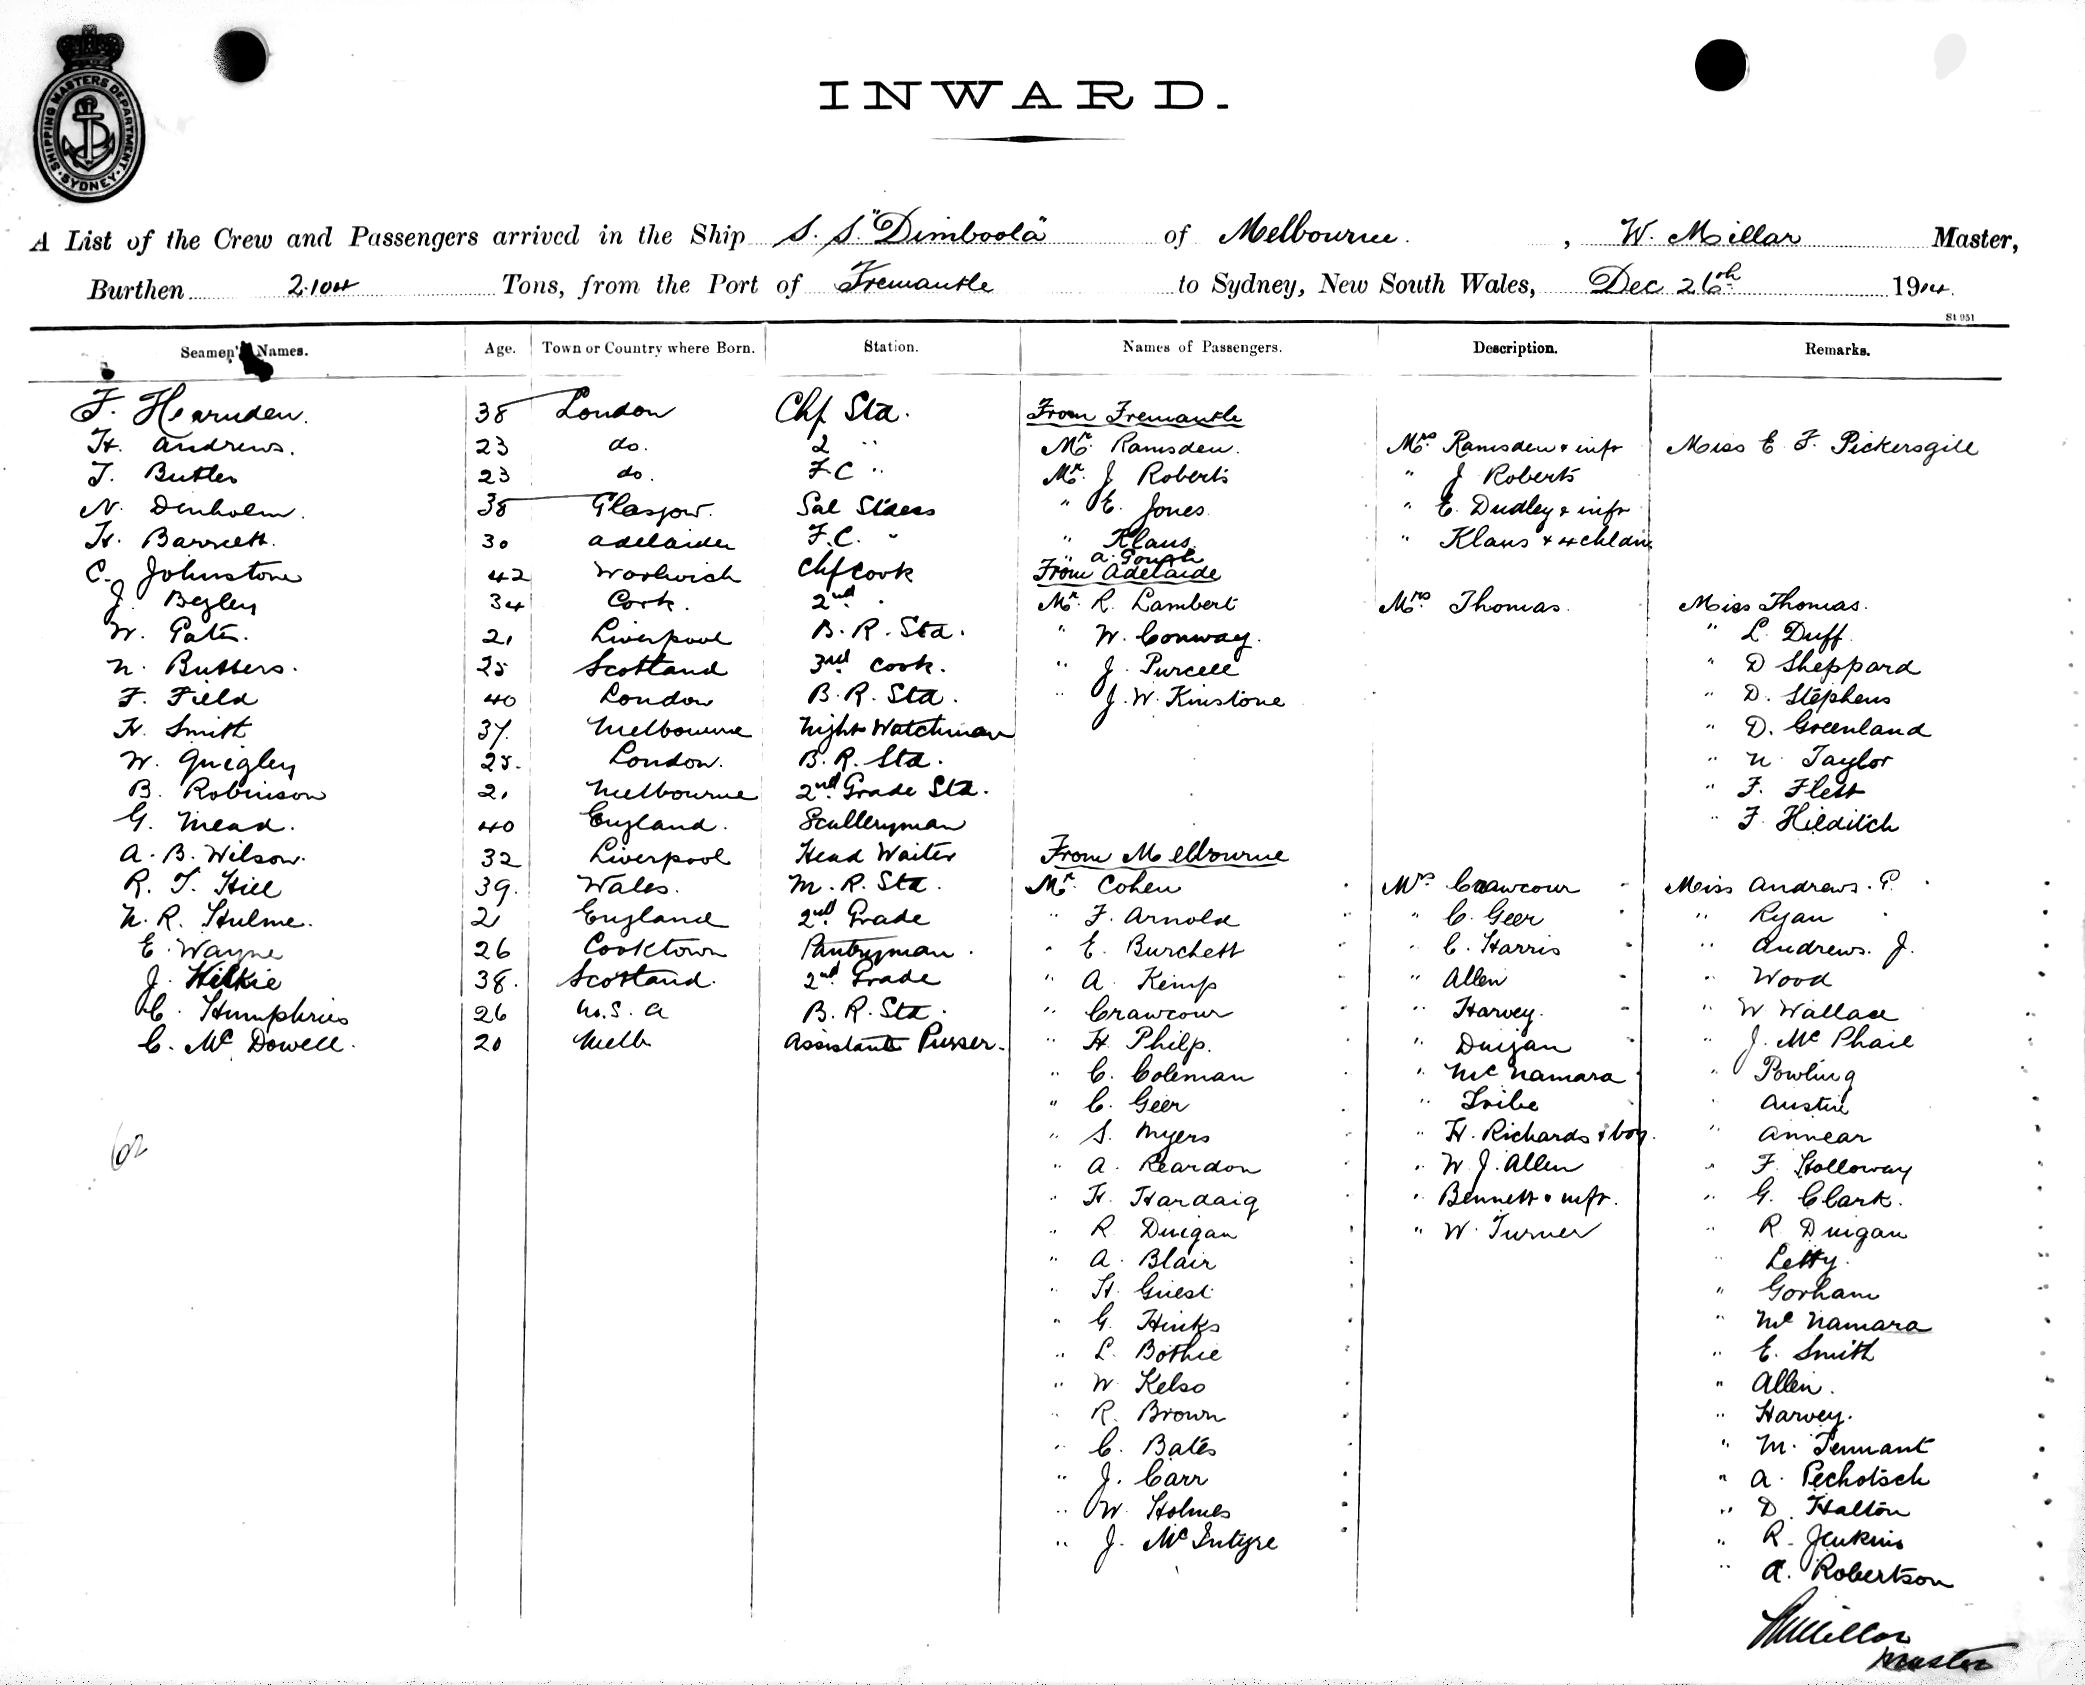 SHIPPING MASTERS DEPARTMENT SYDNEY
INWARD.
A List of the Crew and Passengers arrived in the Ship S.S. "Dimboola" of Melbourne. , W. Millar Master,
Burthen 2104 Tons, from the Port of Fremantle to Sydney, New South Wales, Dec 26th 1914.
St 951
Seamen's Names. Age. Town or Country where Born. Station. Names of Passengers. Description. Remarks.
F. Hearnden. 38 London Chf Std. From Fremantle
H. Andrews. 23 do. 2 " Mr. Ramsden. Mrs Ramsden & inft Miss E F Pickersgill
T. Butler 23 do. F.C " Mr. J Roberts " J Roberts
N. Denholm. 38 Glasgow. Sal Stdess " E. Jones " E. Dudley & inft
H. Barrett. 30 Adelaide F.C. " " Klaus " Klaus & 4 chldn
" A. Gough
C. Johnstone 42 Woolwich Chf Cook From Adelaide
J. Begley 34 Cork. 2nd " Mr. R. Lambert Mrs Thomas. Miss Thomas.
W. Pate. 21 Liverpool B.R. Std. " W. Conway. " L. Duff
N. Butters. 25 Scotland 3rd Cook. " J. Purcell " D Sheppard
F. Field 40 London B.R. Std. " J.W. Kinstone " D. Stephens
H. Smith 37. Melbourne Night Watchman " D. Greenland
W. Quigley 25. London. B.R. Std. " N. Taylor
B. Robinson 21 Melbourne 2nd Grade Std. " F. Flett
G. Mead. 40 England. Sculleryman " F Hilditch
A. B. Wilson. 32 Liverpool Head Waiter From Melbourne
R. T. Hill 39. Wales. M.R. Std. Mr. Cohen Mrs Crawcour Miss Andrews. P.
N. R. Hulme. 21 England 2nd Grade " F. Arnold " C. Geer " Ryan
E. Wayne 26 Cooktown Pantryman. " E. Burchett " C. Harris " Andrews. J.
J. Wilkie 38. Scotland. 2nd Grade " A. Kemp " Allen " Wood
C. Humphries 26 U.S.A B.R. Std. " Crawcour " Harvey. " W Wallace
C. McDowell. 20 Melb Assistant Purser. " H. Philp. " Duigan " J. McPhail
" C. Coleman " McNamara " Powling
" C. Geer " Tribe " Austin
" S. Myers " H. Richards & boy. " Annear
" A. Reardon " W. J. Allen " F. Holloway
62
" H. Hardaig " Bennett & inft. " G. Clark.
" R Duigan " W. Turner " R Duigan
" A. Blair " Letty.
" H. Guest " Gorham
" G. Hinks " McNamara
" L. Bothie " E. Smith
" W Kelso " Allen.
" R. Brown " Harvey.
" C. Bates " M. Tennant
" J. Carr " A. Pechotsch
" W. Holmes " D. Halton
" J. McIntyre " R. Jenkins
" A. Robertson
W Millar
Master